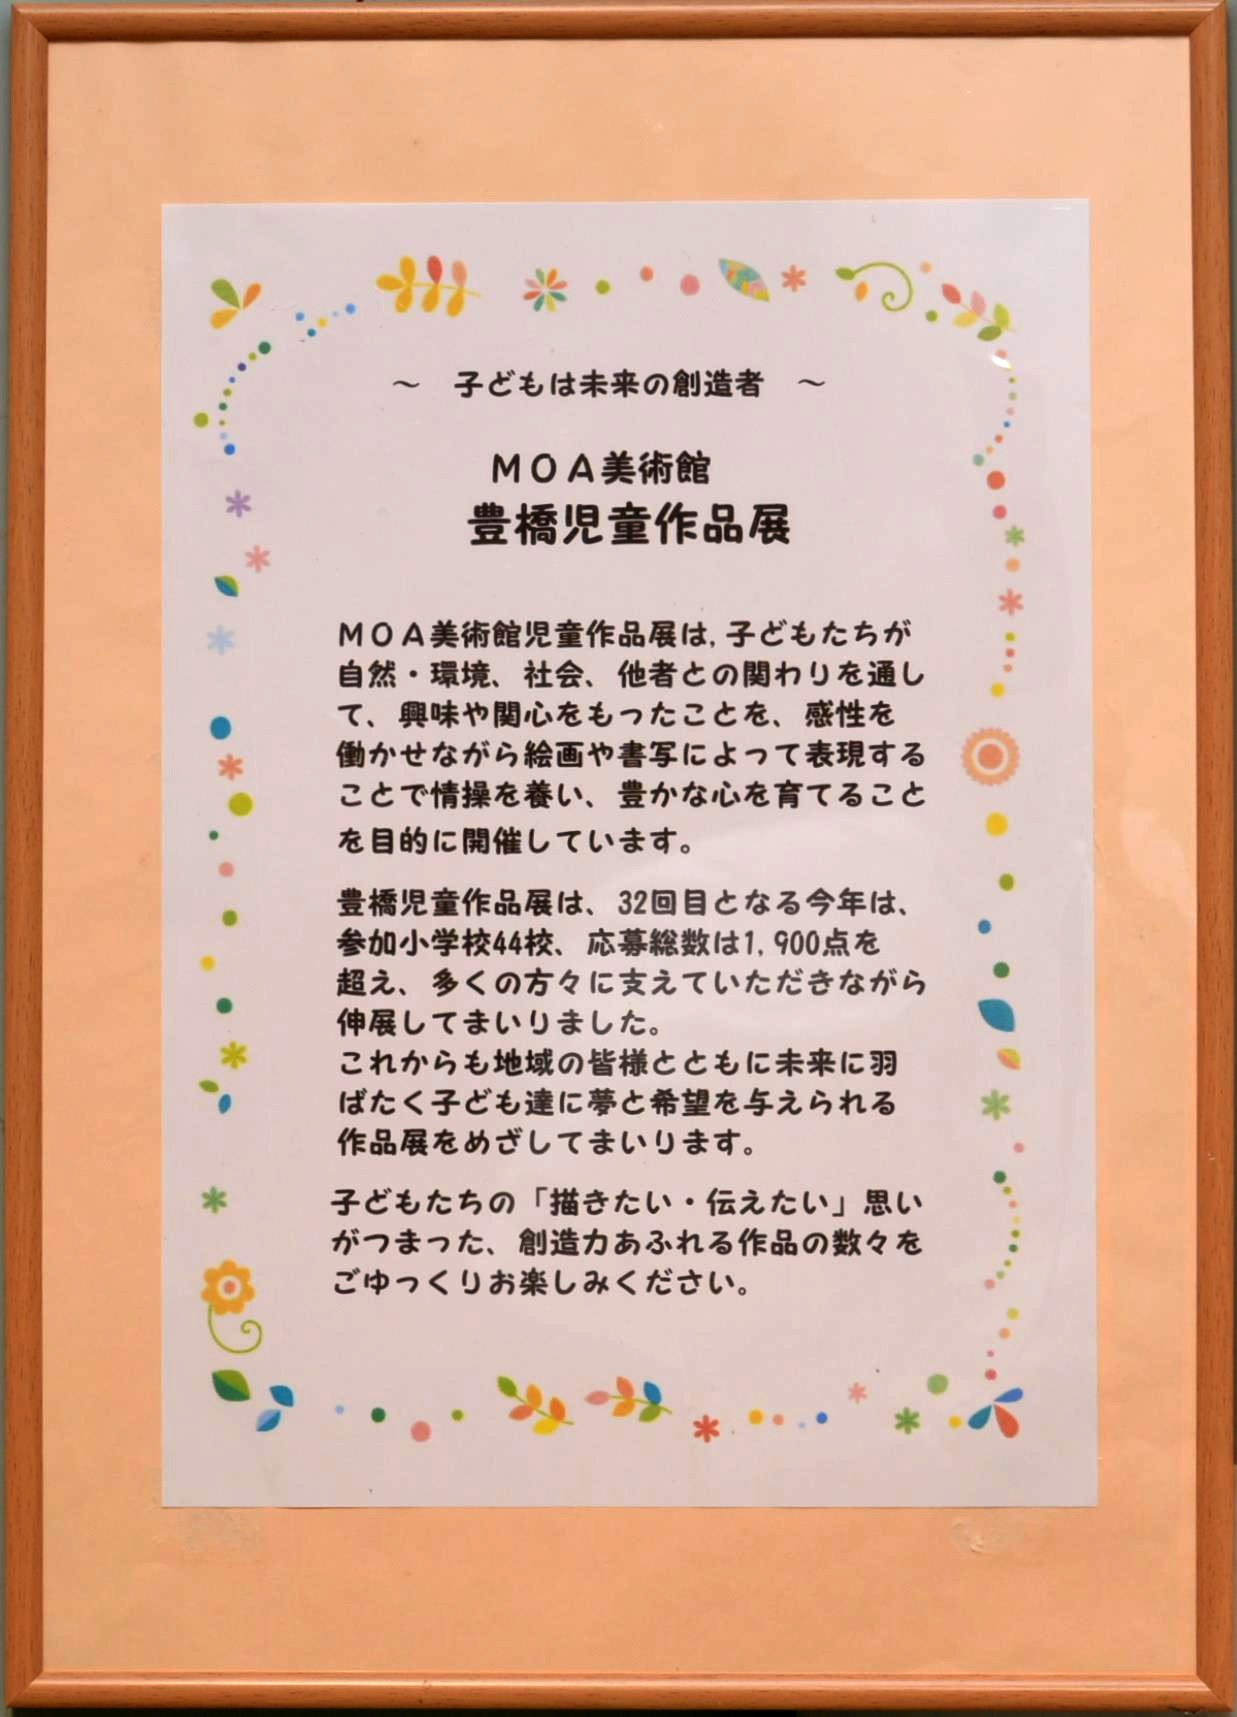 ～　子どもは未来の創造者　～
ＭＯＡ美術館
豊橋児童作品展
ＭＯＡ美術館児童作品展は，子どもたちが
自然・環境、社会、他者との関わりを通し
て、興味や関心をもったことを、感性を
働かせながら絵画や書写によって表現する
ことで情操を養い、豊かな心を育てること
を目的に開催しています。
豊橋児童作品展は、32回目となる今年は、
参加小学校44校、応募総数は1,900点を
超え、多くの方々に支えていただきながら
伸展してまいりました。
これからも地域の皆様とともに未来に羽
ばたく子ども達に夢と希望を与えられる
作品展をめざしてまいります。
子どもたちの「描きたい・伝えたい」思い
がつまった、創造力あふれる作品の数々を
ごゆっくりお楽しみください。